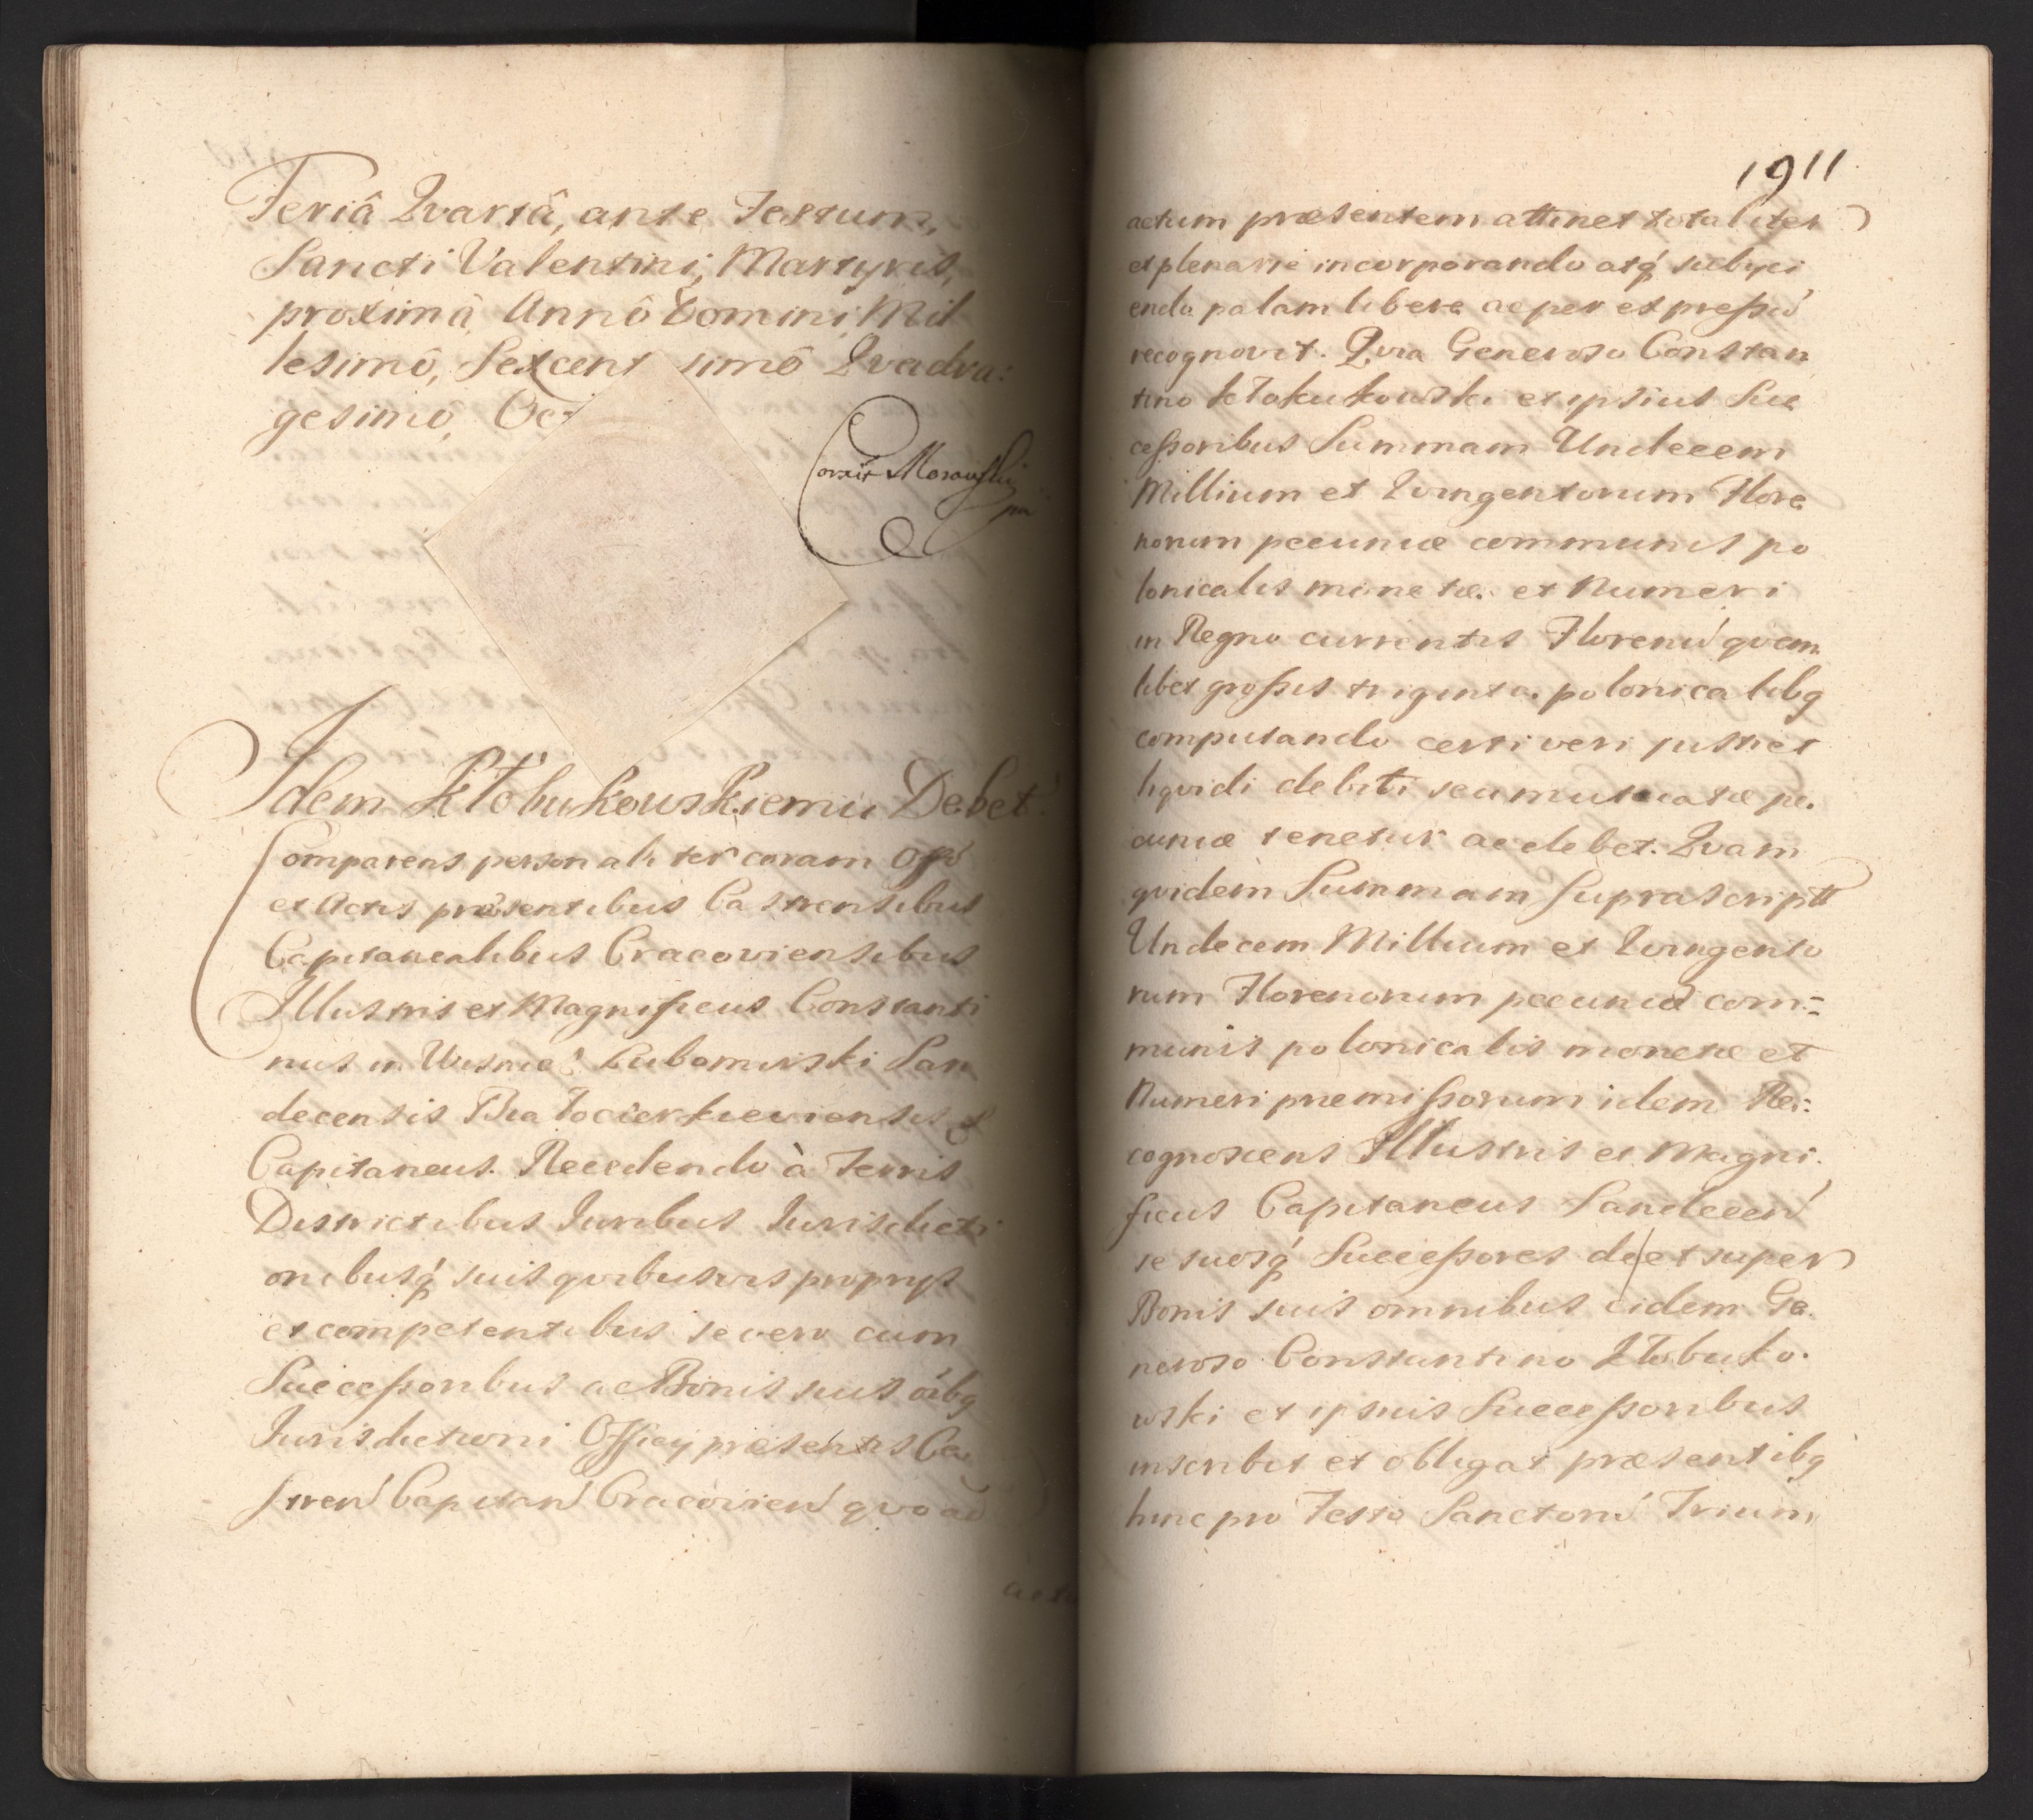 Feriâ Qvartâ, ante Festum,
Sancti Valentini, Martyris,
proximâ, Annô Domini Mil
lesimô, Sexcent simô Qvadra:
gesimô, Oct
Correxit Morawski
mp
Idem Kłobukowskiemu Debet
Comparens personaliter coram Offô
et Actis præsentibus Castrensibus
Capitanealibus Cracoviensibus
Illustris et Magnificus Constanti
nus in Wisnicz Lubomirski San
decensis Białocierkieviensis &
Capitaneus. Recedendo à Terris
Districtibus Juribus Jurisdicti
onibusq́ suis qvibusvis proprys
et competentibus se vero cum
Successoribus ac Bonis suis oibq
Jurisdictioni Officy præsentis Ca
stren Capitan Cracovien qvo ad
actu
1911
actum præsentem attinet totaliter
et plenarie incorporando atq́ subyci
endo palam libere ac per expressu
recognovit. Qvia Generoso Constan
tino Kłobukowski et ipsius Suc
cessoribus Summam Undecem
Millium et Qvingentorum Flore
norum pecuniæ communis po
lonicalis monetæ et Numeri
in Regno currentis Florenu qvem
libet grossis triginta polonicalibq
computando certi veri justi et
liqvidi debiti seu mutuatæ pe
cuniæ tenetur ac debet. Qvam
qvidem Summam Suprascriptt
Undecem Millium et Qvingento
rum Florenorum pecuniæ com=
munis polonicalis monetæ et
Numeri premissorum idem Re:
cognoscens Illustris et Magni
ficus Capitaneus Sandecen
se suosq́ Successores de et super
Bonis suis omnibus eidem Ge
neroso Constantino Kłobuko
wski et ipsius Successoribus
inscribit et obligat præsentibq
hinc pro Festo Sanctoru Trium